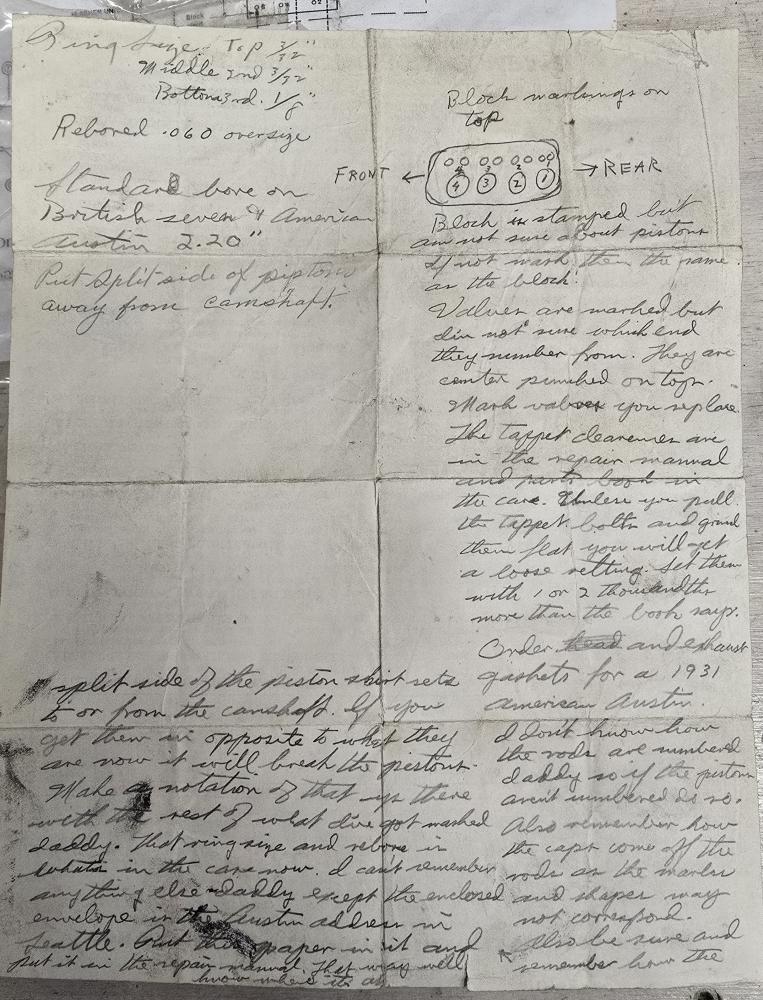 Ring Size. Top 3/32"
Middle 2nd 3/32"
Bottom 3rd. 1/8"
Rebored .060 oversize
Standard bore on
British seven & American
Austin 2.20"
Put split side of pistons
away from camshaft.
Block markings on
top
FRONT ← 4 3 2 1 → REAR
Block is stamped but
am not sure about pistons
If not mark them the same
as the block.
Valves are marked but
I'm not sure which end
they number from. They are
center punched on tops.
Mark valves you replace.
The tappet clearences are
in the repair manual
and parts book in
the car. Unless you pull
the tappet bolts and grind
them flat you will get
a loose setting. Set them
with 1 or 2 thousandths
more than the book says.
Order head and exhaust
gaskets for a 1931
American Austin.
I don't know how
the rods are numbered
daddy so if the pistons
aren't numbered do so.
Also remember how
the caps come off the
rods as the marks
and shapes may
not correspond.
Also be sure and
remember how the
split side of the piston skirt sets
to or from the camshaft. If you
get them in opposite to what they
are now it will break the pistons.
Make a notation of that up there
with the rest of what I've got marked
daddy. That ring size and rebore is
whats in the car now. I can't remember
anything else daddy except the enclosed
envelope is the Austin address in
Seattle. Put this paper in it and
put it in the repair manual. That way we'll
know where its at